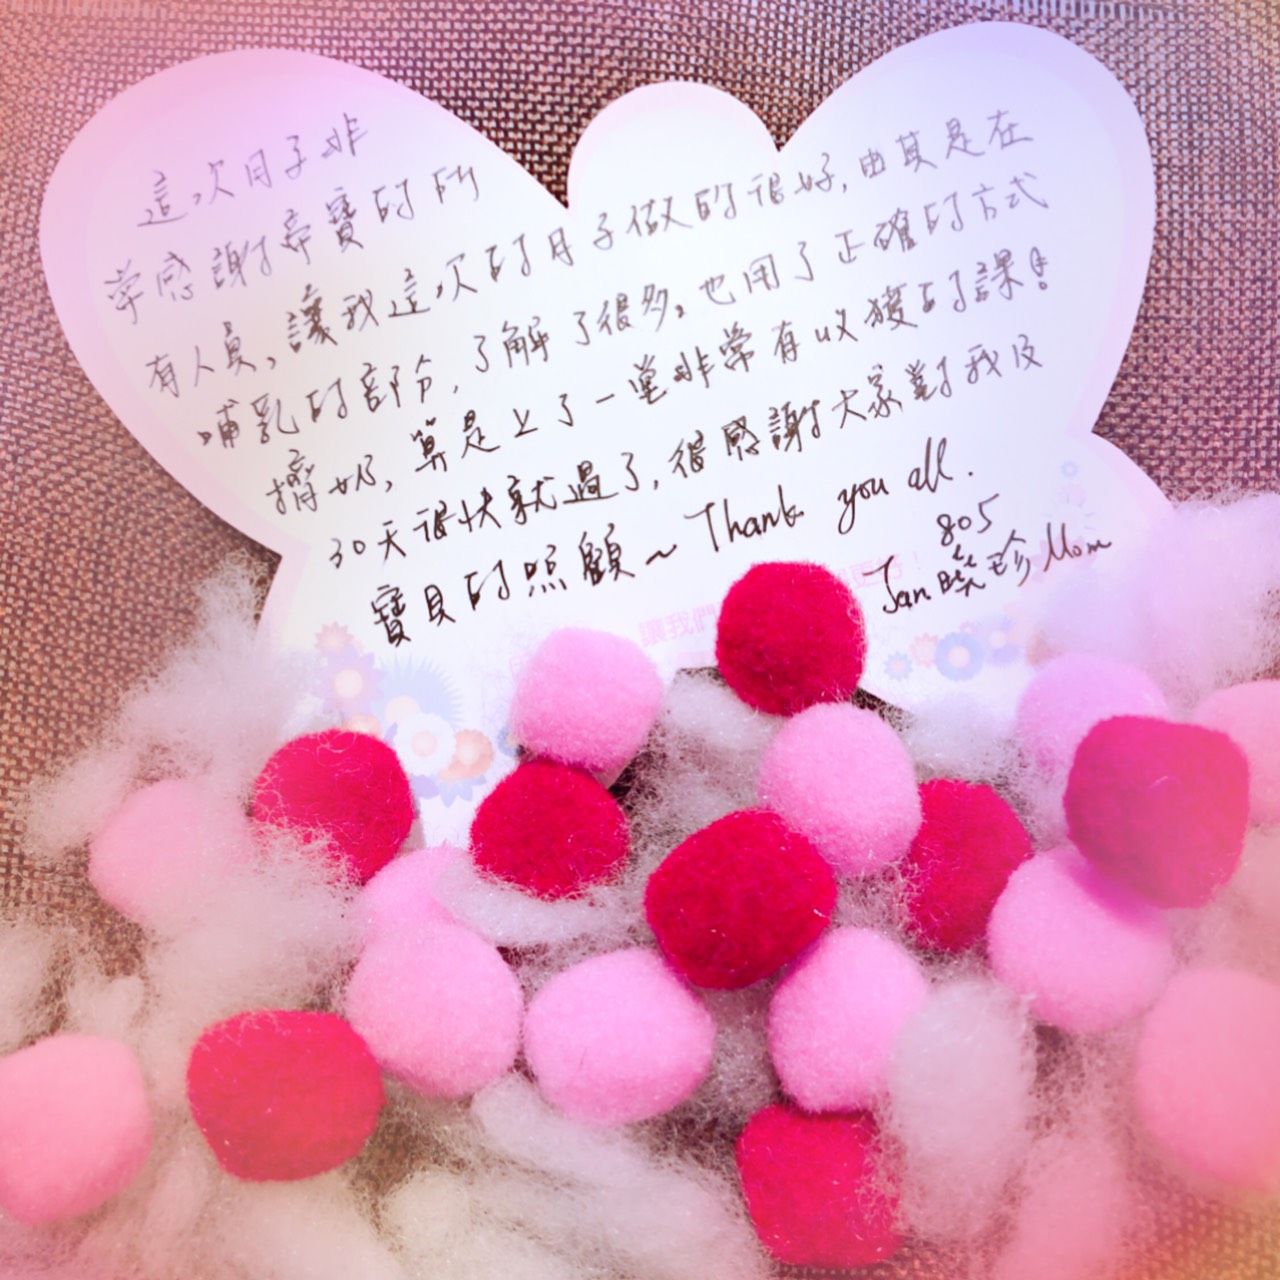 這次月子非
常感謝幸寶的所
有人員,讓我這次的月子做的很好,由其是在
哺乳的部份,了解了很多,也用了正確的方式
擠奶,算是上了一堂非常有收獲的課!
30天很快就過了,很感謝大家對我及
寶貝的照顧~Thank you all.
805
Jan 曉珍 Mom
讓我們